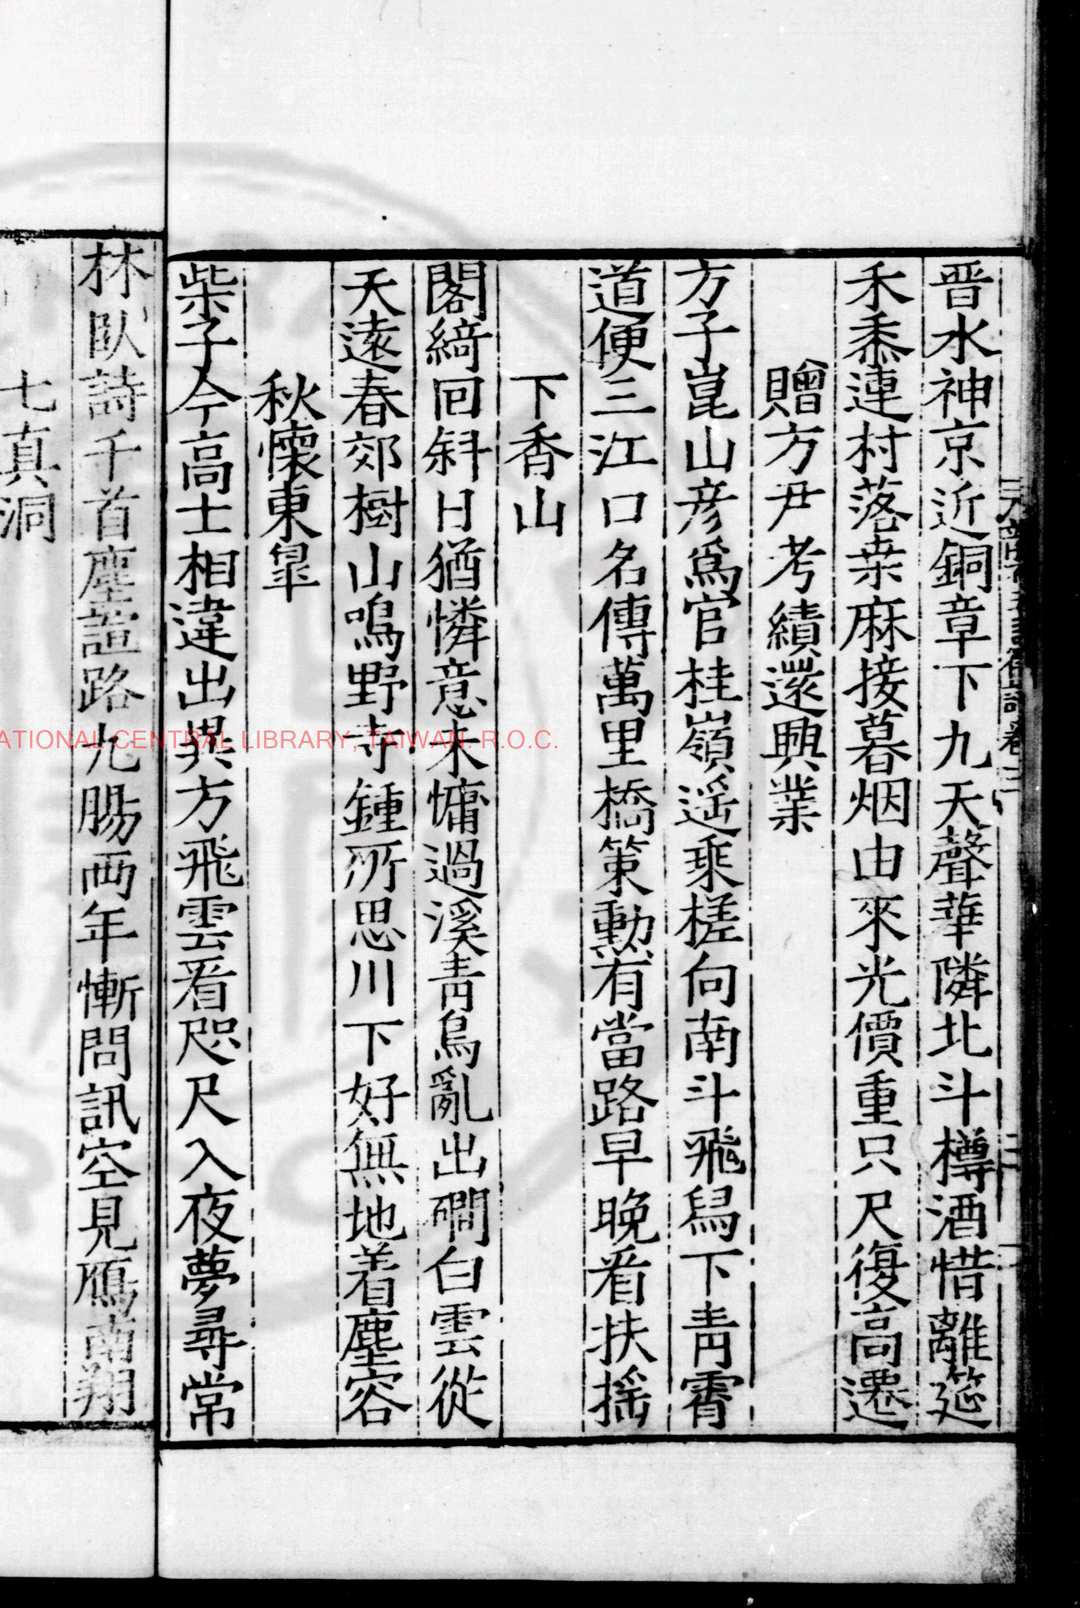 晋水神京近銅章下九天聲華隣北斗樽酒惜離筵
禾黍連村落桒麻接暮烟由來光價重只尺復高遷
贈方尹考績還興業
方子崑山彦爲官桂嶺遥乘槎向南斗飛舄下青霄
道便三江口名傳萬里橋策勳有當路早晚看扶摇
下香山
閣綺回斜日猶憐意未慵過溪青鳥亂出磵白雲從
天遠春郊樹山鳴野寺鍾所思川下好無地着塵容
秋懷東皐
柴子今高士相違出異方飛雲看咫尺入夜夢尋常
林臥詩千首塵諠路九腸两年慚問訊空見鴈南翔
七真洞
NATIONAL CENTRAL LIBRARY, TAIWAN. R.O.C.